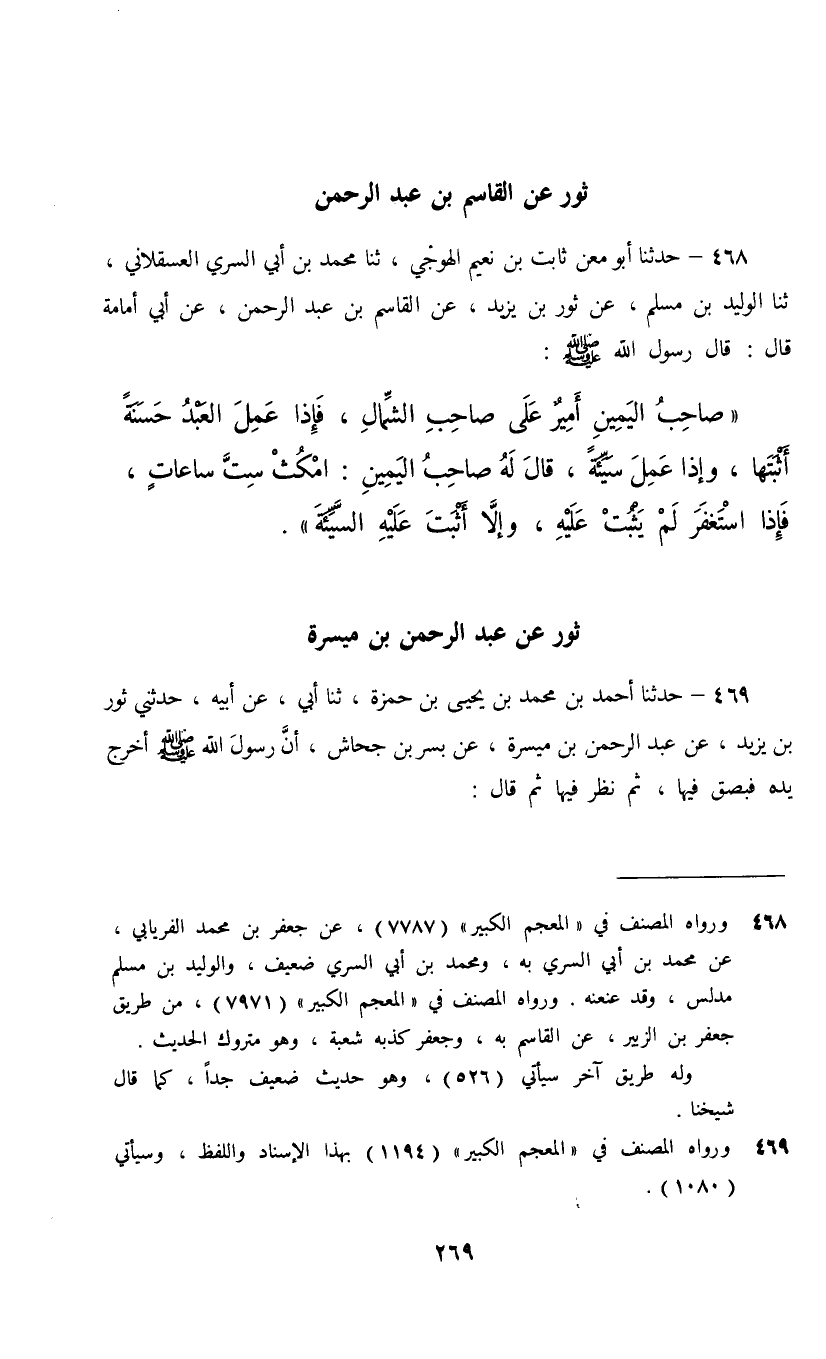 ثور عن القاسم بن عبد الرحمن
٤٦٨ – حدثنا أبو معن ثابت بن نعيم الهوجْي ، ثنا محمد بن أبي السري العسقلاني ،
ثنا الوليد بن مسلم ، عن ثور بن يزيد ، عن القاسم بن عبد الرحمن ، عن أبي أمامة
قال : قال رسول الله ﷺ :
« صاحِبُ اليَمِينِ أَمِيرٌ عَلَى صاحِبِ الشِّمالِ ، فَإِذا عَمِلَ العَبْدُ حَسَنَةً
أَثْبَتَها ، وإذا عَمِلَ سيِّئَةً ، قالَ لَهُ صاحِبُ اليَمِينِ : امْكُثْ سِتَّ ساعاتٍ ،
فَإِذا اسْتَغفَرَ لَمْ يَثْبُتْ عَلَيْهِ ، وإلَّا أَثْبَتَ عَلَيْهِ السَّيِّئَةَ » .
ثور عن عبد الرحمن بن ميسرة
٤٦٩ – حدثنا أحمد بن محمد بن يحيى بن حمزة ، ثنا أبي ، عن أبيه ، حدثني ثور
بن يزيد ، عن عبد الرحمن بن ميسرة ، عن بسر بن جحاش ، أنَّ رسولَ الله ﷺ أخرج
يده فبصق فيها ، ثم نظر فيها ثم قال :
٤٦٨ ورواه المصنف في « المعجم الكبير » (٧٧٨٧) ، عن جعفر بن محمد الفريابي ،
عن محمد بن أبي السري به ، ومحمد بن أبي السري ضعيف ، والوليد بن مسلم
مدلس ، وقد عنعنه . ورواه المصنف في « المعجم الكبير » (٧٩٧١) ، من طريق
جعفر بن الزبير ، عن القاسم به ، وجعفر كذبه شعبة ، وهو متروك الحديث .
وله طريق آخر سيأتي (٥٢٦) ، وهو حديث ضعيف جداً ، كما قال
شيخنا .
٤٦٩ ورواه المصنف في « المعجم الكبير » (١١٩٤) بهذا الإسناد واللفظ ، وسيأتي
(١٠٨٠) .
٢٦٩